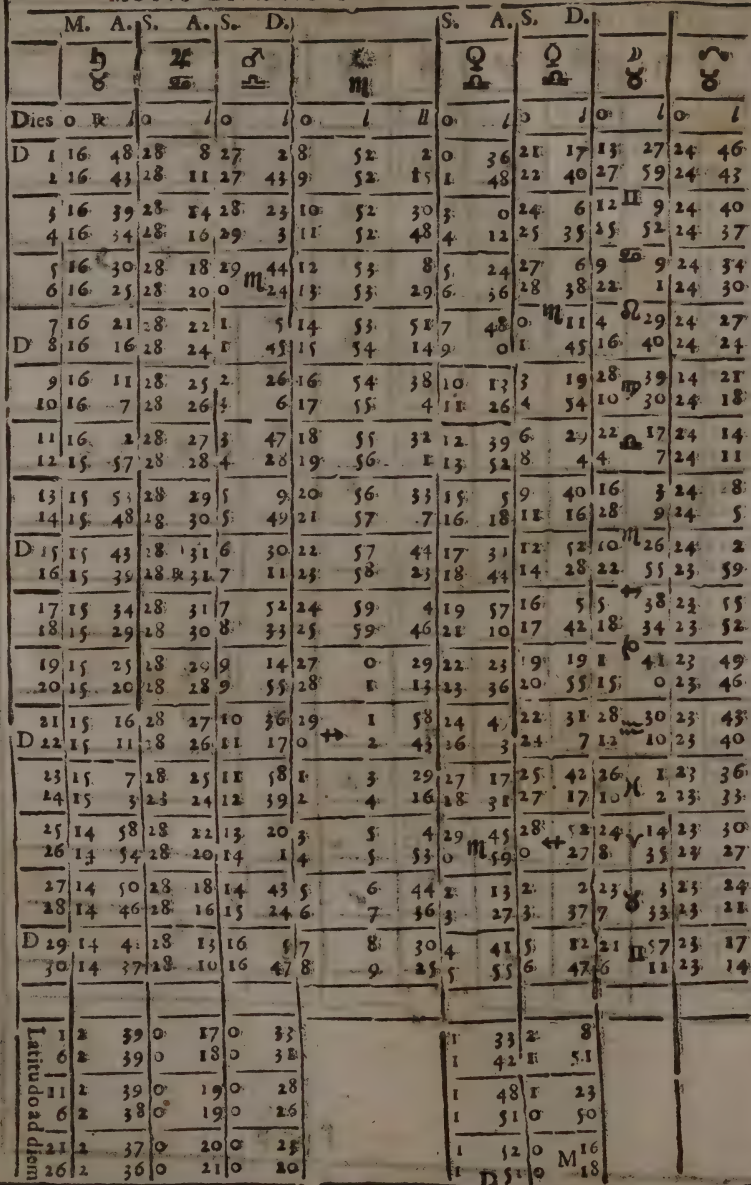 M. A. S. A. S. D. S. A. S. D.
♄ ♃ ♂ ☼ ♀ ☿ ☽ ☊
♉ ♋ ♎ ♏ ♎ ♎ ♉ ♉
Dies o ℞ l o l o l o l ll o l o l o l o l
D 1 16 48 28 8 27 2 8 52 2 0 36 21 17 13 27 24 46
2 16 43 28 11 27 43 9 52 15 1 48 22 40 27 59 24 43
3 16 39 28 14 28 23 10 52 30 3 0 24 6 12 ♊ 9 24 40
4 16 34 28 16 29 3 11 52 48 4 12 25 35 25 52 24 37
5 16 30 28 18 29 44 12 53 8 5 24 27 6 9 ♋ 9 24 34
6 16 25 28 20 0 ♏ 24 13 53 29 6 36 28 38 22 1 24 30
7 16 21 28 22 1 5 14 53 51 7 48 0 ♏ 11 4 ♌ 29 24 27
D 8 16 16 28 24 1 45 15 54 14 9 0 1 45 16 40 24 24
9 16 11 28 25 2 26 16 54 38 10 13 3 19 28 39 24 21
10 16 7 28 26 3 6 17 55 4 11 26 4 54 10 ♍ 30 24 18
11 16 2 28 27 3 47 18 55 32 12 39 6 29 22 17 24 14
12 15 57 28 28 4 28 19 56 1 13 52 8 4 4 ♎ 7 24 11
13 15 53 28 29 5 9 20 56 33 15 5 9 40 16 3 24 8
14 15 48 28 30 5 49 21 57 7 16 18 11 16 28 9 24 5
D 15 15 43 28 31 6 30 22 57 44 17 31 12 52 10 ♏ 26 24 2
16 15 39 28 ℞ 31 7 11 23 58 23 18 44 14 28 22 55 23 59
17 15 34 28 31 7 52 24 59 4 19 57 16 5 5 ♐ 38 23 55
18 15 29 28 30 8 33 25 59 46 21 10 17 42 18 34 23 52
19 15 25 28 29 9 14 27 0 29 22 23 19 19 1 ♑ 41 23 49
20 15 20 28 28 9 55 28 1 13 23 36 20 55 15 0 23 46
21 15 16 28 27 10 36 29 1 58 24 4 22 31 28 30 23 43
D 22 15 11 28 26 11 17 0 ♐ 2 43 26 3 24 7 12 ♒ 10 23 40
23 15 7 28 25 11 58 1 3 29 27 17 25 42 26 1 23 36
24 15 3 23 24 12 39 2 4 16 28 31 27 17 10 ♓ 2 23 33
25 14 58 28 22 13 20 3 5 4 29 45 28 52 24 14 23 30
26 14 54 28 20 14 1 4 5 53 0 ♏ 59 0 ♐ 27 8 ♈ 35 23 27
27 14 50 28 18 14 43 5 6 44 2 13 2 2 23 3 23 24
28 14 46 28 16 15 24 6 7 36 3 27 3 37 7 ♉ 33 23 21
D 29 14 4 28 13 16 5 7 8 30 4 41 5 12 21 57 23 17
30 14 37 28 10 16 47 8 9 25 5 55 6 47 6 ♊ 11 23 14
Latitudo ad diem
1 2 39 0 17 0 33 1 33 2 8
6 2 39 0 18 0 3 1 42 1 51
11 2 39 0 19 0 28 1 48 1 23
6 2 38 0 19 0 26 1 51 0 50
21 2 37 0 20 0 23 1 52 0 M 16
26 2 36 0 21 0 20 1 51 0 18
D